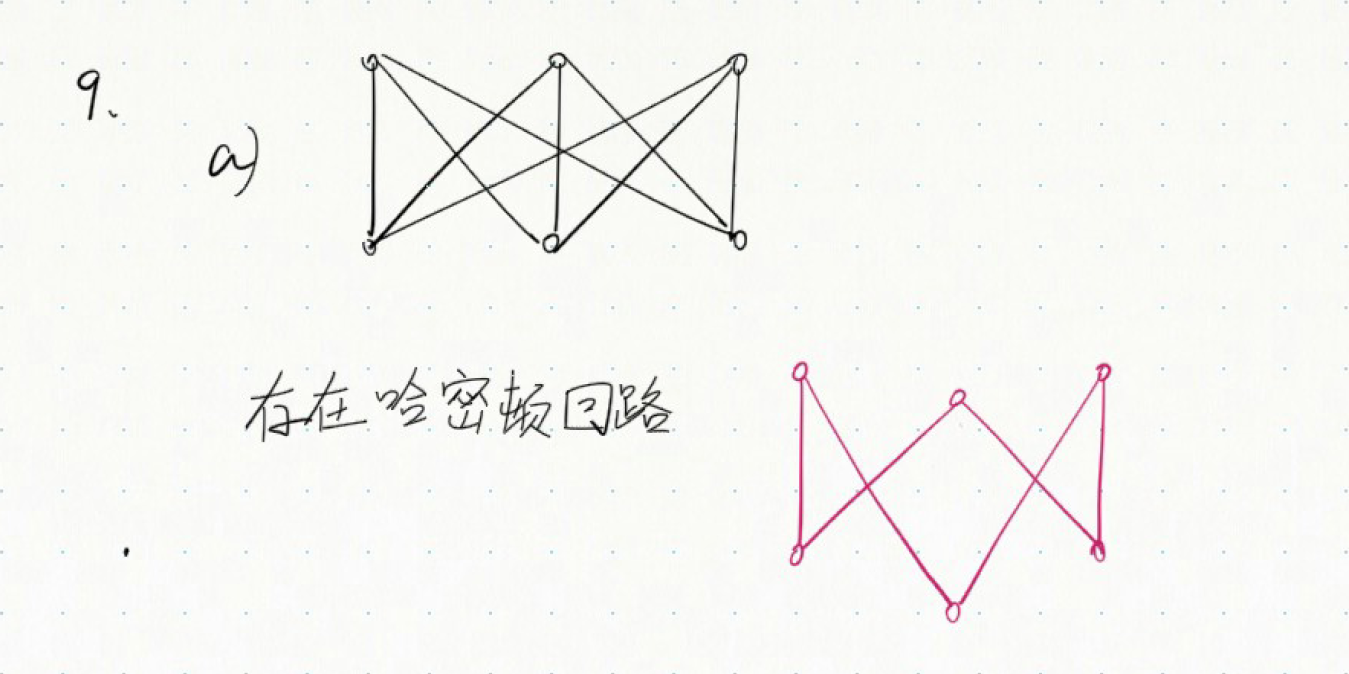 9、
a)
存在哈密顿回路